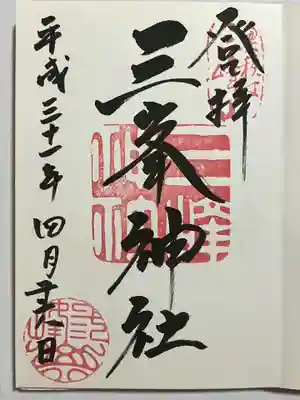 登拝
三峯神社
平成三十一年四月日